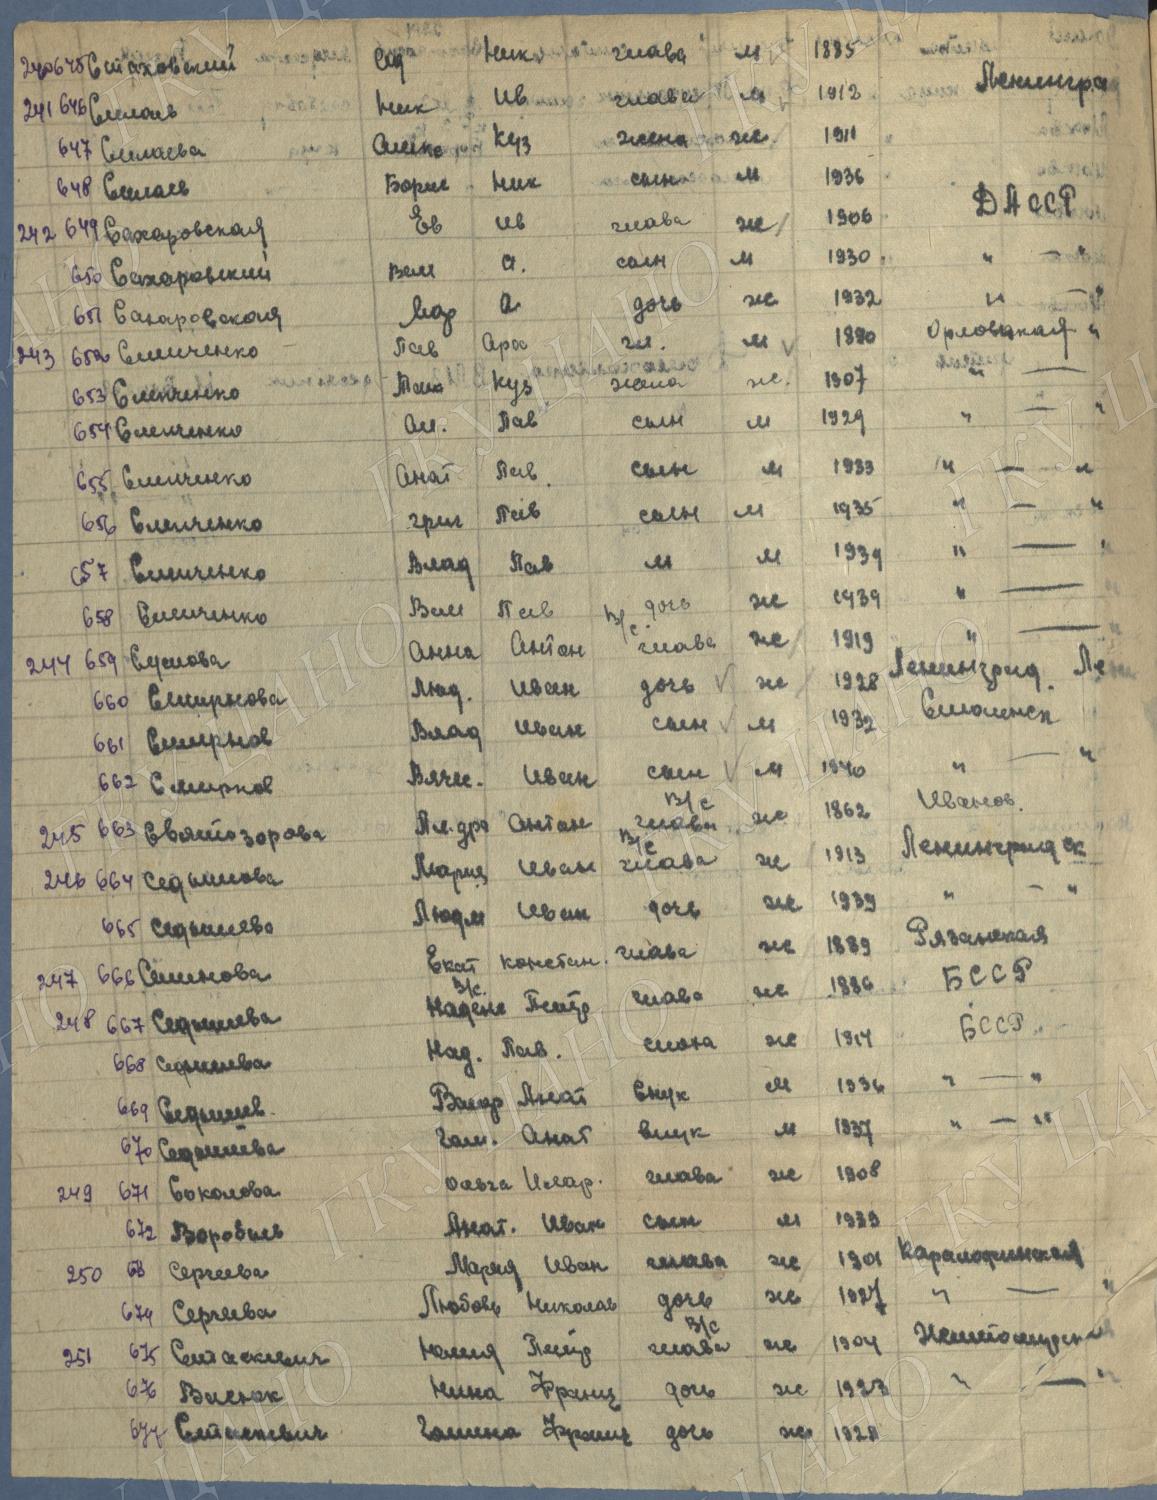 240 645 Стаховский Сид Ник глава м 1885
241 646 Силаев Ник Ив глава м 1912 Ленингра
647 Силаева Алекс Куз жена ж 1911
648 Силаев Борис Ник сын м 1936
242 649 Сахаровская Ев Ив глава ж 1906 ДАССР
650 Сахаровский Вал А. сын м 1930 " — "
651 Сахаровская Мар А дочь ж 1932 " — "
243 652 Симченко Пав Ара гл. м 1890 Орловская "
653 Симченко Куз жена ж. 1907 " —
654 Симченко Ал. Пав сын м 1929 " — "
655 Симченко Анат Пав. сын м 1933 " — "
656 Симченко Григ Пав сын м 1935 " — "
657 Симченко Влад Пав м м 1939 " — "
658 Симченко Вал Пав дочь ж 1939 " —
244 659 Суслова Анна Антон в/с глава ж 1919 " — "
660 Смирнова Люд. Иван дочь ж 1928 Ленинград. Лен
661 Смирнов Влад Иван сын м 1932 Смоленск
662 Смирнов Вяче. Иван сын м 1940 " — "
245 663 Святозорова Антон в/с глава ж 1862 Иванов.
246 664 Седышова Мария Иван в/с глава ж 1913 Ленинградск
665 Седышева Людм Иван дочь ж 1939 " — "
247 666 Семенова Екат констан. глава ж 1889 Рязанская
248 667 Седышева в/с. Надеж Петр глава ж 1886 БССР
668 Седышева Над. Пав. ж 1914 БССР
669 Седышев. Валер Анат Внук м 1936 " — "
670 Седышева Гал. Анат внук м 1937 " — "
249 671 Соколова Ольга глава ж 1908
672 Воробьев Анат. Иван сын м 1939
250 673 Сергеева Мария Иван глава ж 1901
674 Сергеева Любовь Николав дочь ж 1927 " — "
251 675 Станкевич Юлия Петр в/с глава ж 1904
676 Нина Франц дочь ж 1923 " — "
677 Станкевич Галина Франц дочь ж 1928